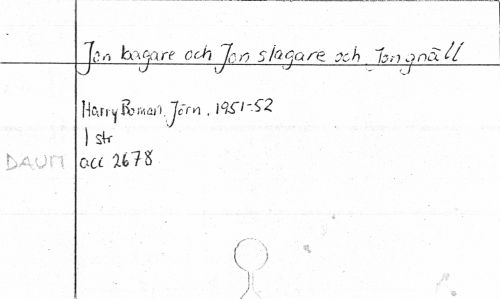 Jon bagare och Jon slagare och Jon gnäll
Harry Roman, Jörn, 1951-52
1 str
DAUM acc 2678